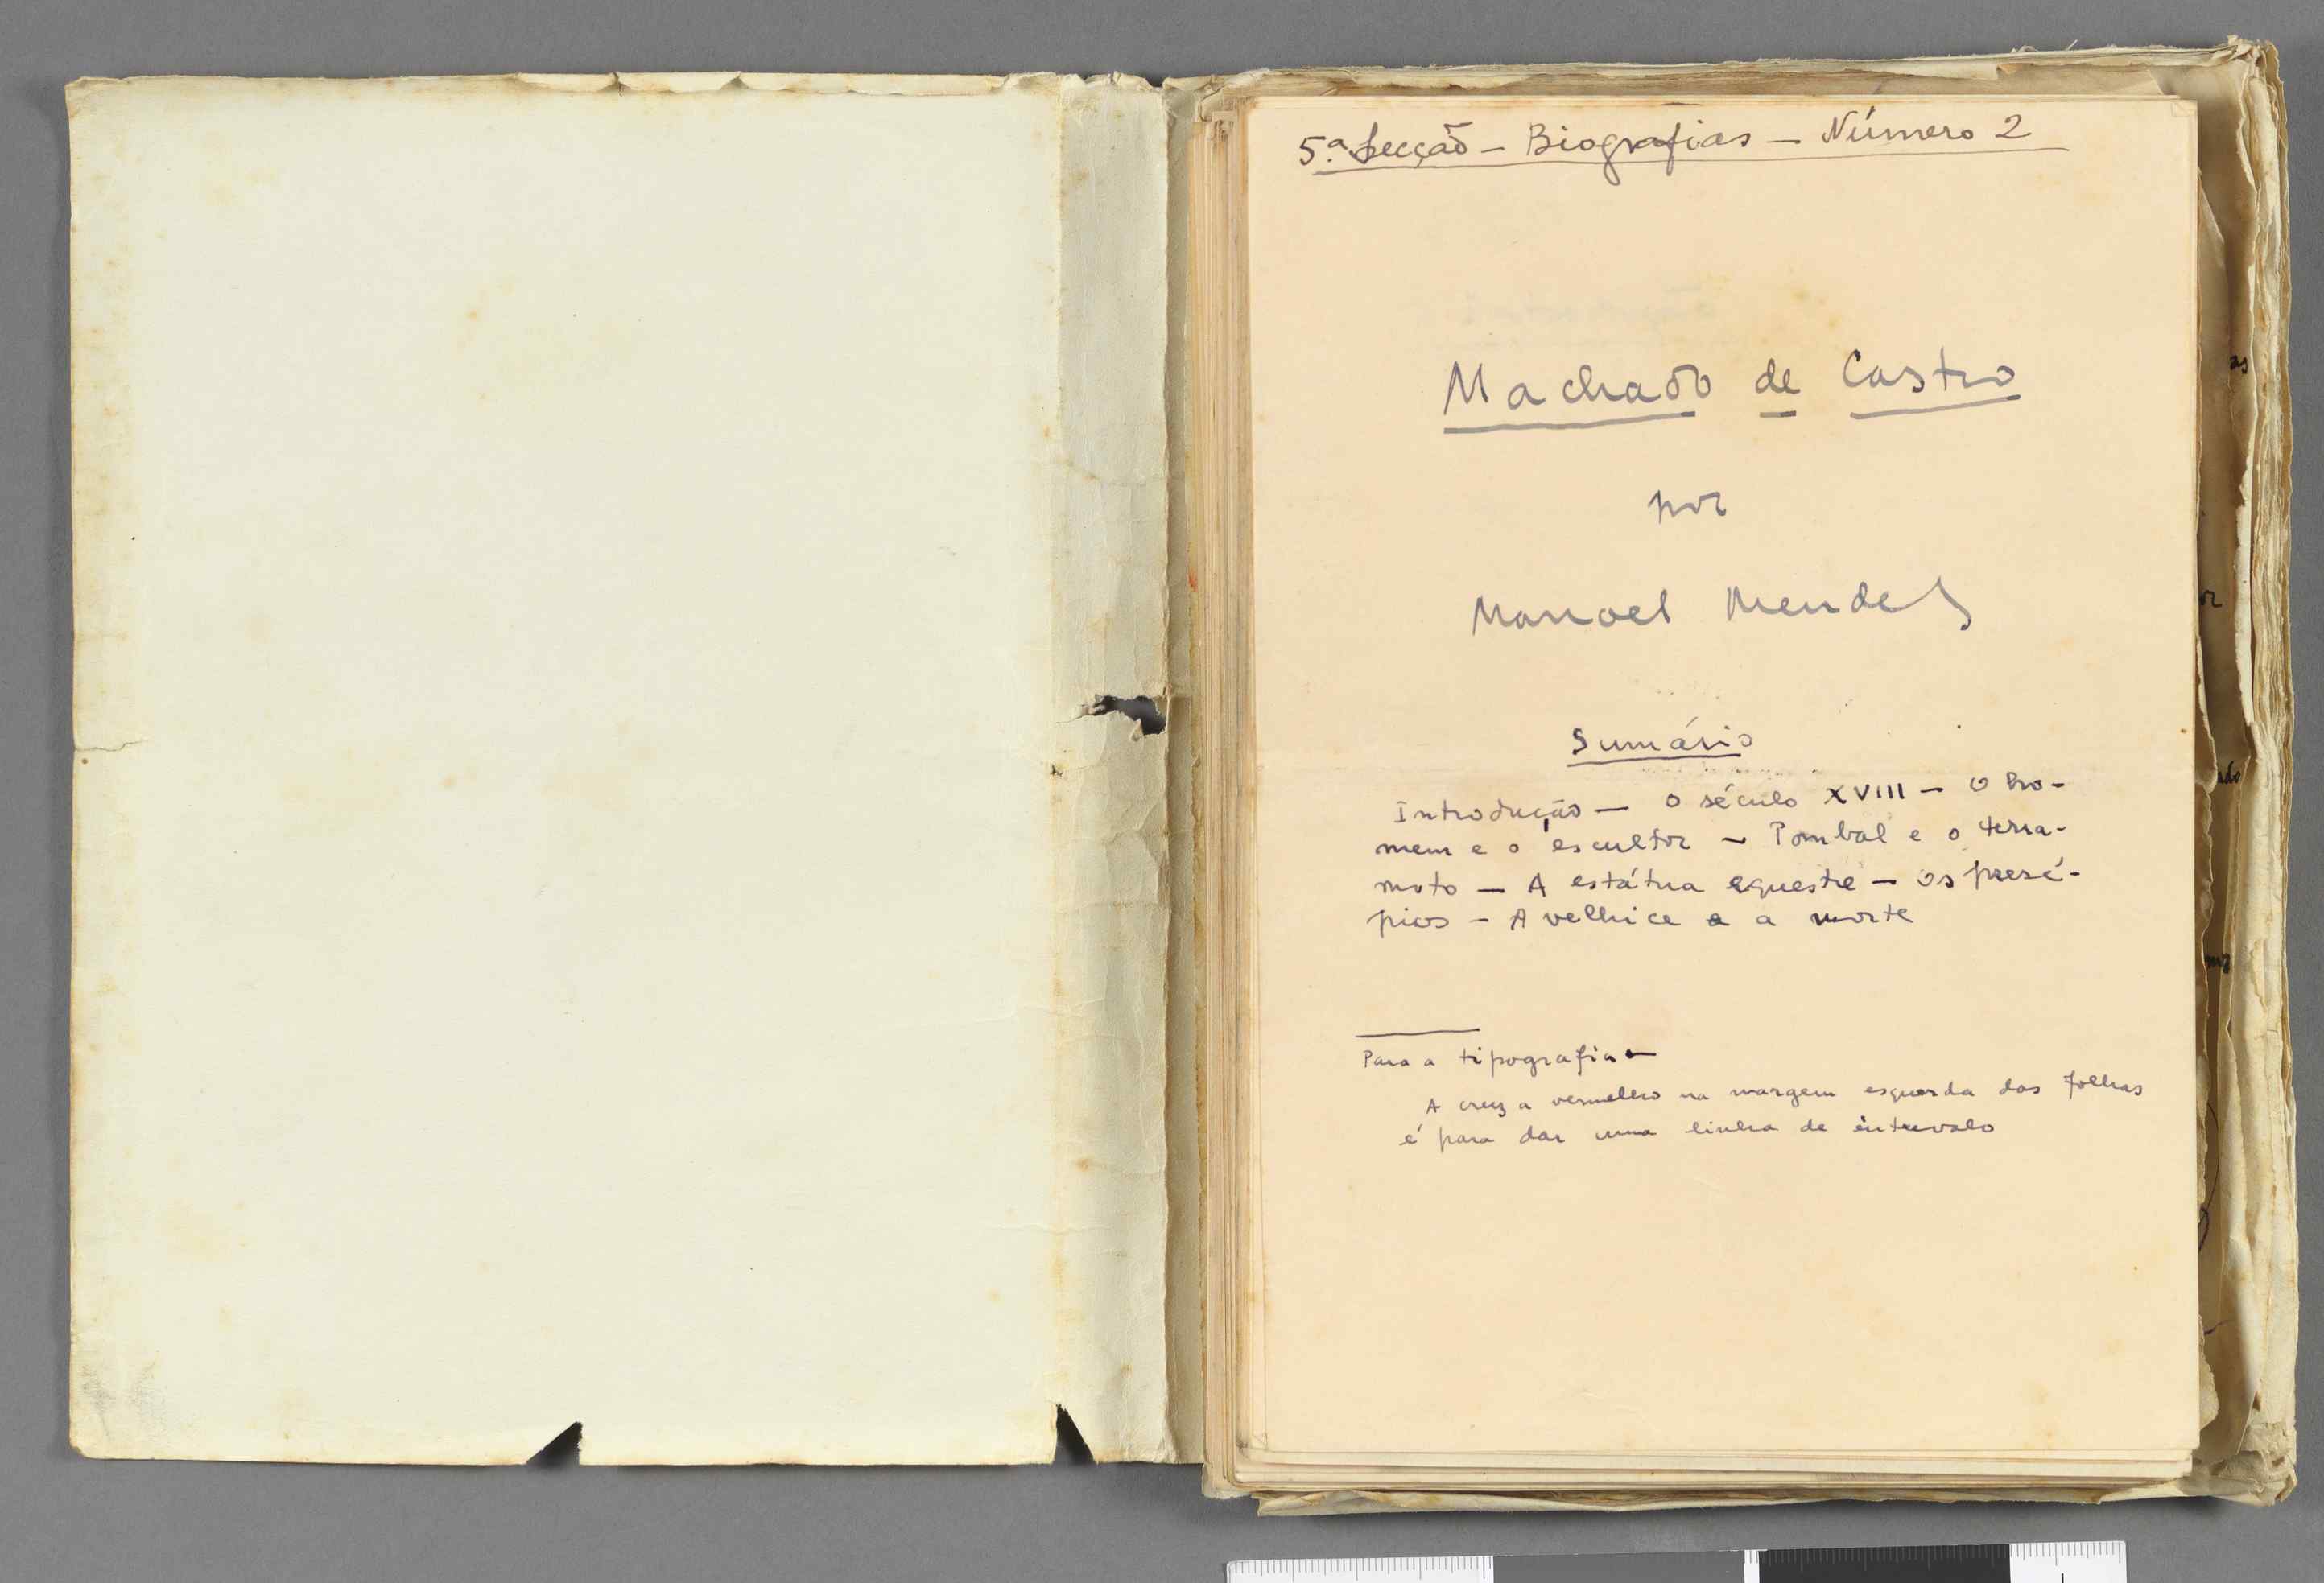 5.ª Secção - Biografias - Número 2
Machado de Castro
por
Manoel Mendes
Sumário
Introdução - O século XVIII - O ho-
mem e o escultor - Pombal e o terra-
moto - A estátua equestre - Os presé-
pios - A velhice e a morte
Para a tipografia -
A cruz a vermelho na margem esquerda das folhas
é para dar uma linha de intervalo